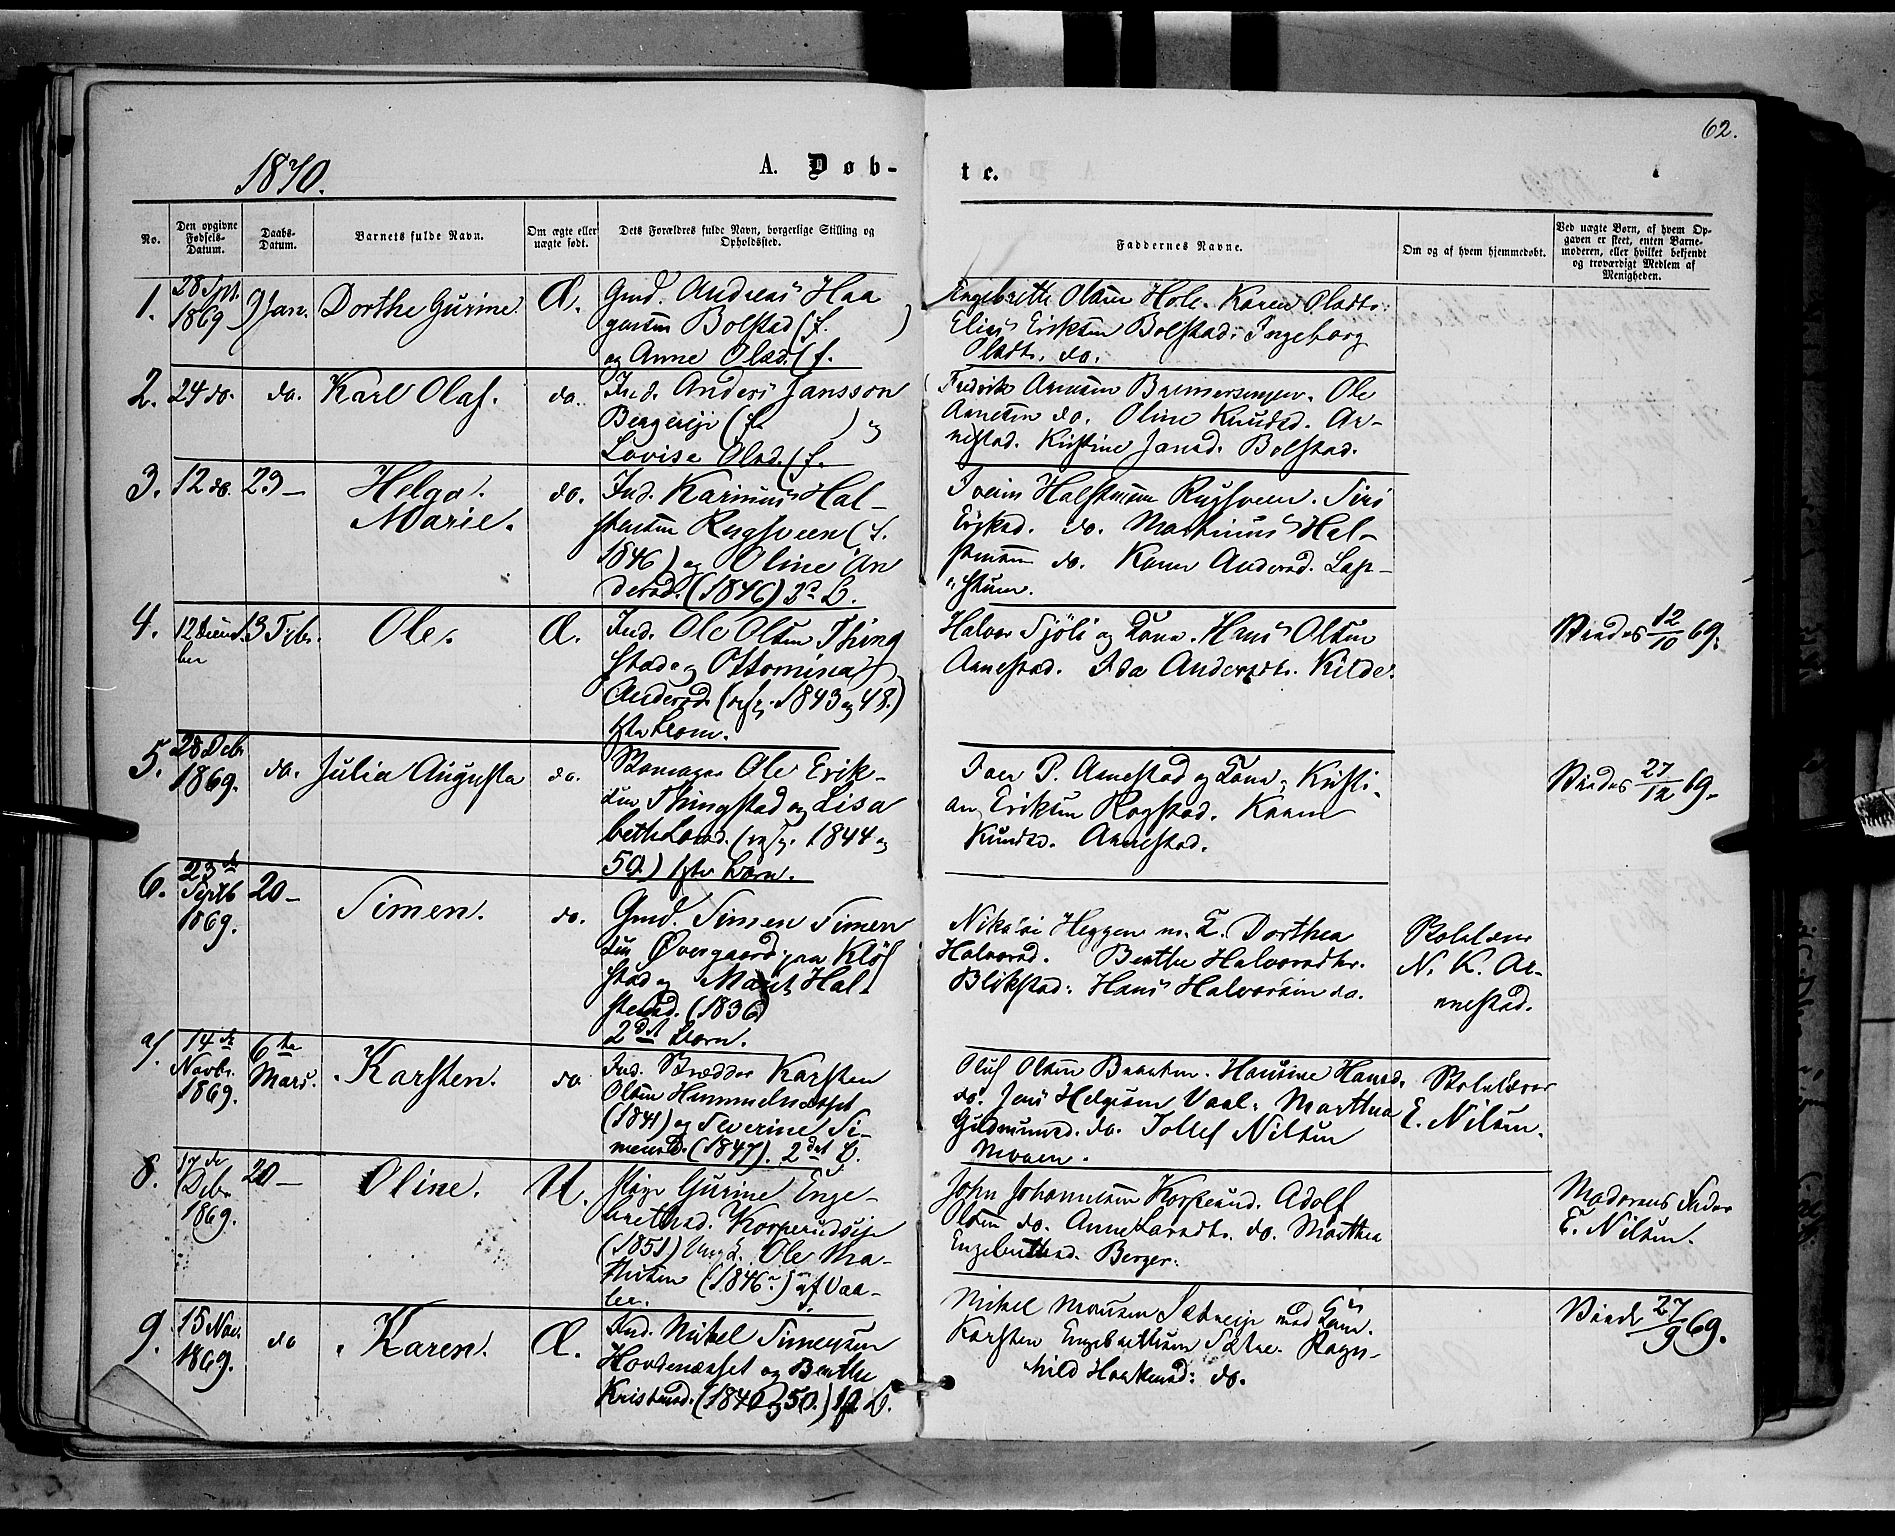 62.
1870.
A. Døb-
te.
No.
Den opgivne Fødsels-Datum.
Daabs-Datum.
Barnets fulde Navn.
Om ægte eller uægte født.
Dets Forældres fulde Navn, borgerlige Stilling og Opholdssted.
Faddernes Navne.
Om og af hvem hjemmedøbt.
Ved uægte Børn, af hvem Opgaven er skeet, enten Barnemoderen, eller hvilket bekjendt og troværdigt Medlem af Menigheden.
1.
28 Spt.
1869
9 Jan.
Dorthe Gurine.
Æ.
Gmd. Andreas Haa
gensen Bolstad (f. )
og Anne Olsd. (f.
Engebreth Olsen Hole. Karen Olsdtr.
Elias Eriksen Bolstad. Ingeborg
Olsdtr. do.
2.
24 do.
do.
Karl Olaf.
do.
Ind. Anders Jansson
Bergereje (f. ) og
Lovise Olsd. (f.
Fredrik Arnesen. Ole
Arnesen do. Oline Knudsd. Ar-
nestad. Kristine Jansd. Bolstad.
3.
12 do.
23 —
Helga
Marie.
do.
Ind. Karinus Hal-
stensen Rugsveen (f.
1846) og Oline An
dersd. (1846) 3d B.
Iver Halstensen Rugsveen. Siri
do. Martinus Hal-
stensen do. Karen Andersd. Lap-
stuen.
4.
12 Decem-
ber
13 Febr.
Ole.
Æ.
Ind. Ole Olsen Thing
stad og Ottomina
Andersd. (resp. 1843 og 48.)
1ste Barn.
Halvor Sjöli og Kone. Hans Olsen
Arnestad. Ida Andersdtr. Kilde.
Viedes 12/10 69.
5.
28 Debr
1869.
do.
Julia Augusta
do.
Skomager Ole Erik-
sen Thingstad og Lisa
beth Larsd. (resp. 1844 og
50.) 1ste Barn.
Iver P. Arnestad og Kone. Kristi-
an Eriksen Rogstad. Karen
Knudsd. Arnestad.
Viedes 27/12 69.
6.
23de
Septb
1869.
20 —
Simen.
do.
Gmd. Simen Simen
sen Øvergaard paa Kløf
stad og Marit Hal-
stensd. (1836)
2det Barn.
Nikolai Heggen m. K. Dorthea
Halvorsd. Berthe Halvorsdtr.
Blikstad. Hans Halvorsen do.
Skolelærer
N. K. Ar-
nestad.
7.
14de
Novbr.
1869.
6te
Mars.
Karsten.
do.
Ind. Snedker Karsten
Olsen Himmelnæsset
(1841) og Severine Si-
mensd. (1847). 2det B.
Oluf Olsen Braaten. Hansine Hansd.
do. Jens Helgesen Vaal. Marthea
Gudmunsd. do. Tollef Nilsen
Moaen.
Skolelærer
E. Nilsen.
8.
17de
Debr.
1869.
20 —
Oline.
U.
Pige Gurine Enge-
brethsd. Korperudseje
(1851) Ungk. Ole Ma-
thisen (1846) af Vaa-
ler.
John Johannesen Korperud. Adolf
Olsen do. Anne Larsdtr. do. Marthea
Engebrethsd. Berger.
Moderens Fader
E. Nilsen.
9.
15 Nov.
1869.
do
Karen.
Æ.
Ind. Mikel Simensen
Hovdenæsset og Berthe
Kristensd. (1840 og 50.) 1ste B.
Mikel Monsen Sætreeje med Kone.
Karsten Engebrethsen Sætre. Ragn-
hild Haakensd. do.
Viede 27/9 69.